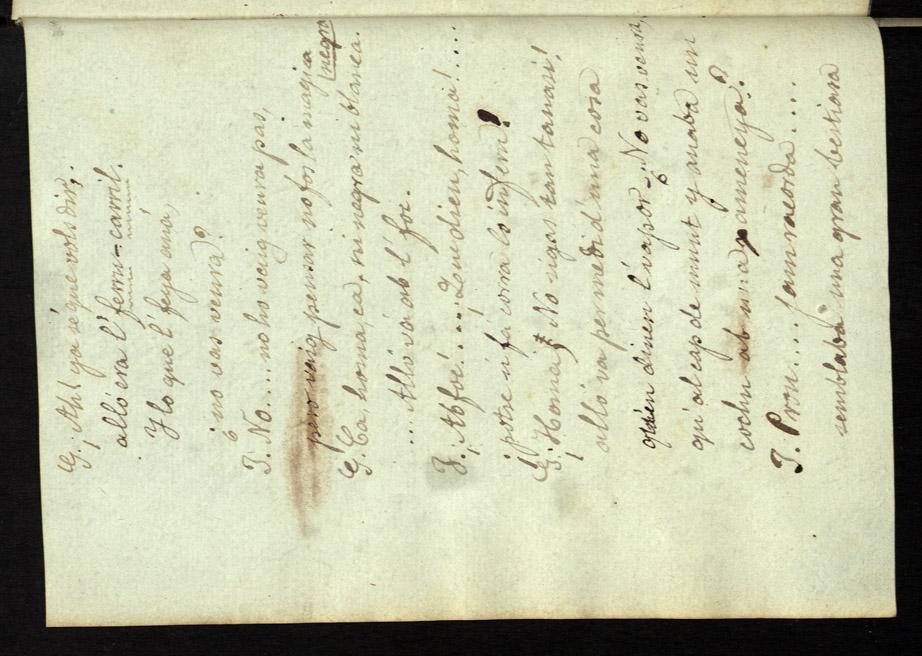 G. ¡Ah! ya sé que vols dir;
alló era l' ferru-carril.
Y lo que l' feya aná,
¿no vas veurá?
J. No.... no ho vaig veura pas,
pero vaig pensar no fos la magica
negra
G. Ca, homa, ca, ni negra ni blanca.
... Alló vá ab l' foc.
J. ¡Ab foc!.... ¿Qué dien, homa!....
¡potse u fa corra lo infern!
G. ¡Homa, No sigas tan tanasi!
alló va per medi d' una cosa
que dien l' vapor. ¿No vas veura,
qu' al cap de munt y anaba un
cochu ab una jameneya?
J. Prou.... ja m racorda....
semblaba una gran bestiasa